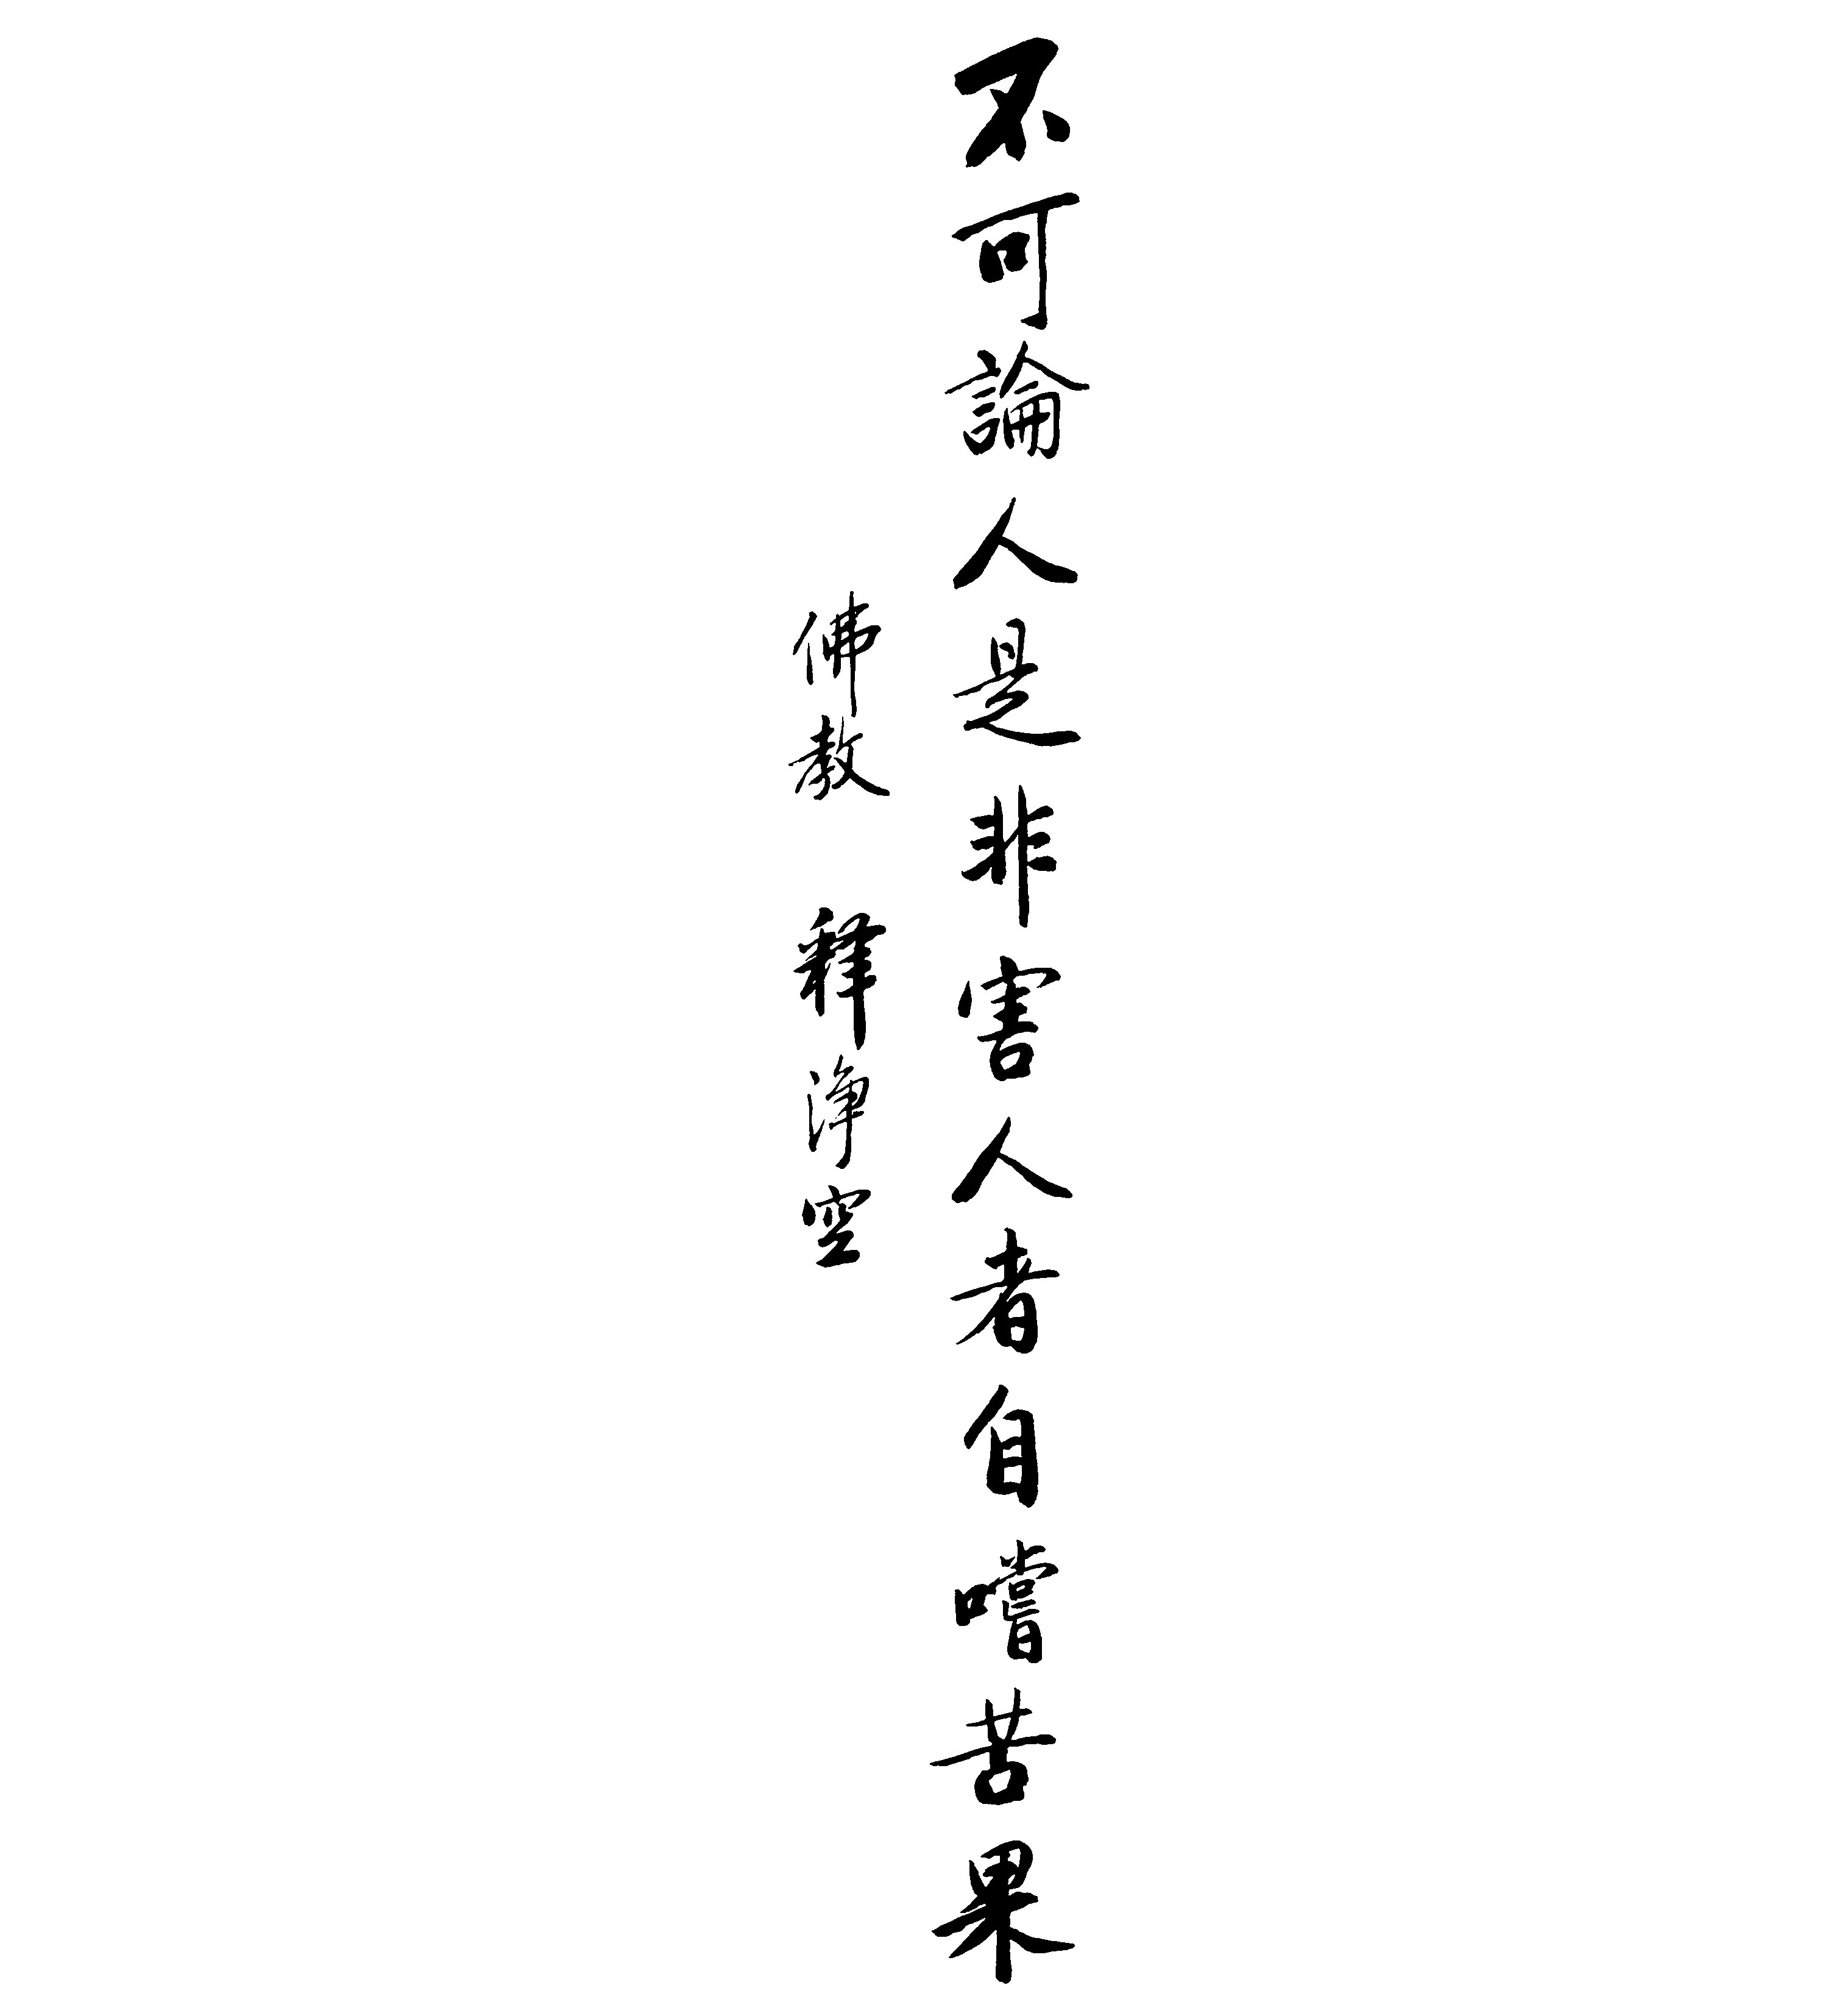 不可論人是非害人者自嚐苦果
佛教 釋淨空